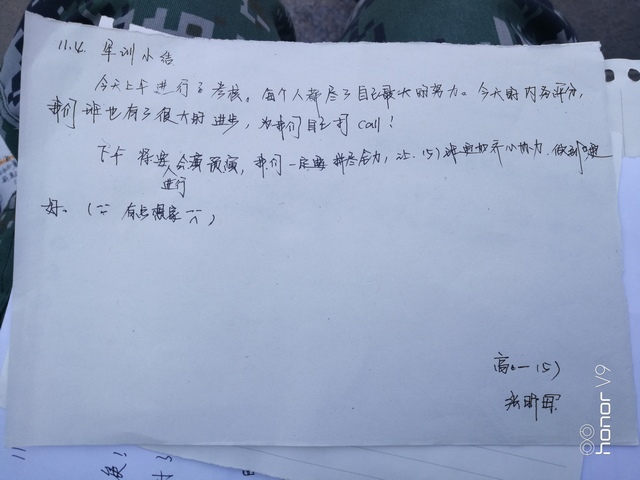 11.4. 军训小结
今天上午进行了考核。每个人都尽了自己最大的努力。今天的内务评分,
我们班也有了很大的进步,为我们自己打call!
下午将要会演预演,我们一定要拼尽全力,让(5)班更加齐心协力,做到更
进行
好。( 有点想家 )
高一(5)
honor V9